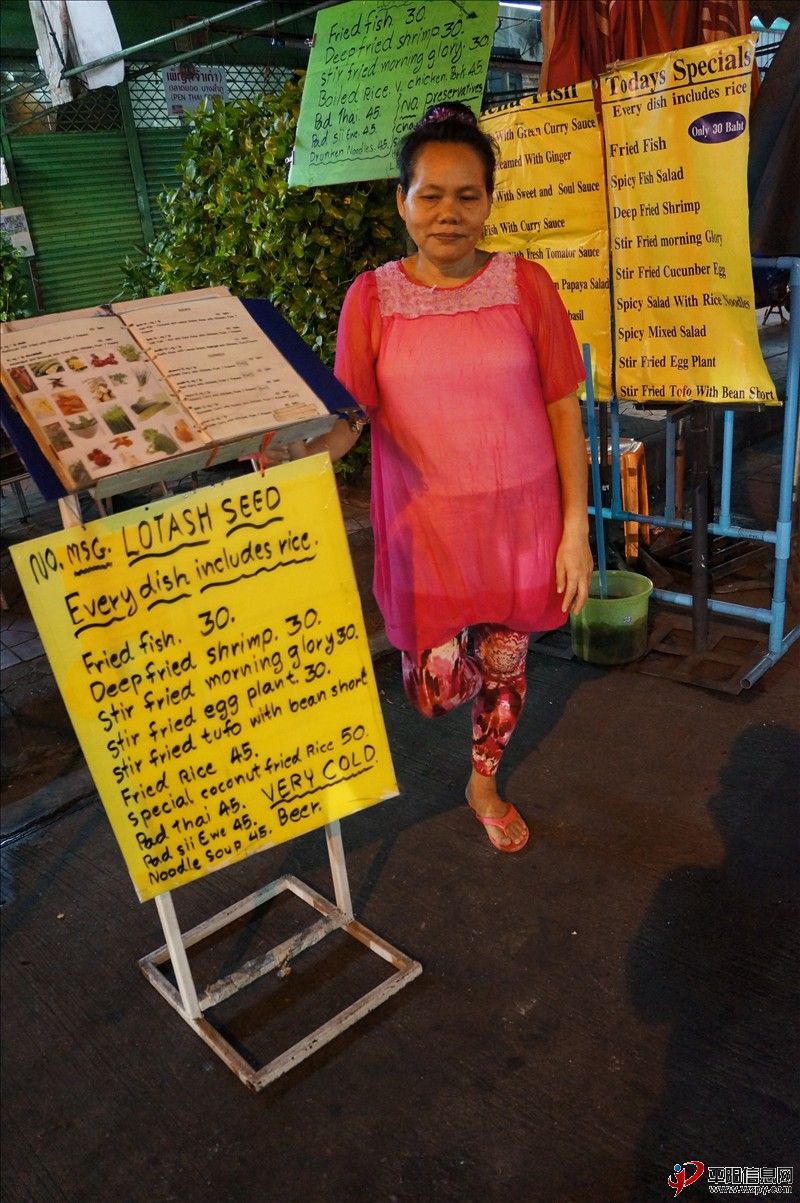 Fried fish 30.
Deep fried shrimp. 30.
Stir fried morning glory. 30
Boiled Rice v. chicken. Pork 45
Pad Thai. 45
Pad sii Ewe. 45
Drunken Noodles. 45
No.
preservatives
Fish
With Green Curry Sauce
With Ginger
With Sweet and Soul Sauce
Fish With Curry Sauce
With Fresh Tomator Sauce
Papaya Salad
Todays Specials
Every dish includes rice
Only 30 Baht
Fried Fish
Spicy Fish Salad
Deep Fried Shrimp
Stir Fried morning Glory
Stir Fried Cucunber Egg
Spicy Salad With Rice Noodles
Spicy Mixed Salad
Stir Fried Egg Plant
Stir Fried Tofo With Bean Short
No. MSG. LOTASH SEED
Every dish includes rice.
Fried fish. 30.
Deep fried shrimp. 30.
Stir fried morning glory 30.
Stir fried egg plant. 30.
Stir fried tufo with bean short
Fried Rice 45.
special coconut fried Rice 50.
Pad Thai 45. VERY COLD.
Pad sii Ewe 45. Beer.
Noodle Soup 45.
平阳信息网
www.wzpy.com